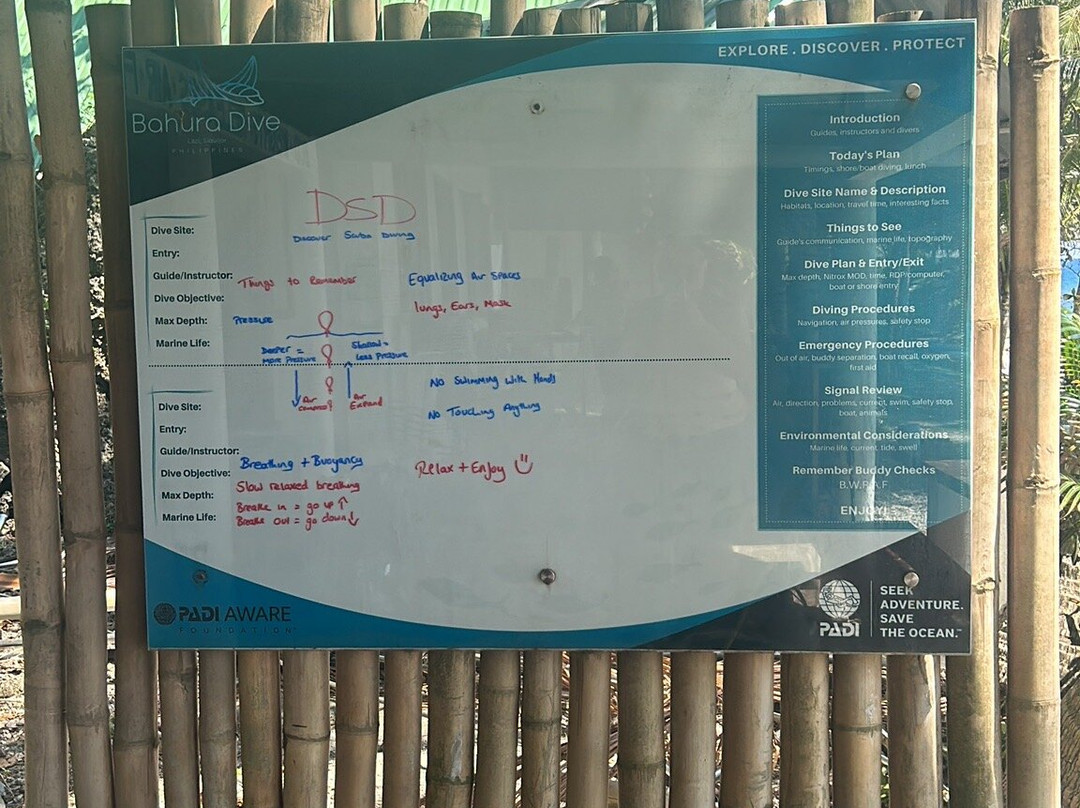 EXPLORE . DISCOVER . PROTECT
Bahura Dive
PHILIPPINES
DSD
Discover Scuba Diving
Dive Site:
Entry:
Guide/Instructor:
Dive Objective:
Max Depth:
Marine Life:
Things to Remember
Pressure
Deeper =
more Pressure
Shallow =
Less Pressure
Air
Air
Expand
Equalizing Air Spaces
lungs, Ears, Mask
No Swimming with Hands
No Touching Anything
Dive Site:
Entry:
Guide/Instructor:
Dive Objective:
Max Depth:
Marine Life:
Breathing + Buoyancy
Slow relaxed breathing
Breathe in = go up ↑
Breathe out = go down ↓
Relax + Enjoy
Introduction
Guides, instructors and divers
Today's Plan
Timings, shore/boat diving, lunch
Dive Site Name & Description
Habitats, location, travel time, interesting facts
Things to See
Guide's communication, marine life, topography
Dive Plan & Entry/Exit
Max depth, Nitrox MOD, time, RDP/computer,
boat or shore entry
Diving Procedures
Navigation, air pressures, safety stop
Emergency Procedures
Out of air, buddy separation, boat recall, oxygen,
first aid
Signal Review
Air, direction, problems, current, swim, safety stop,
boat, animals
Environmental Considerations
Marine life, current, tide, swell
Remember Buddy Checks
B.W.R.A.F
ENJOY!
PADI AWARE
FOUNDATION
PADI
SEEK
ADVENTURE.
SAVE
THE OCEAN.™